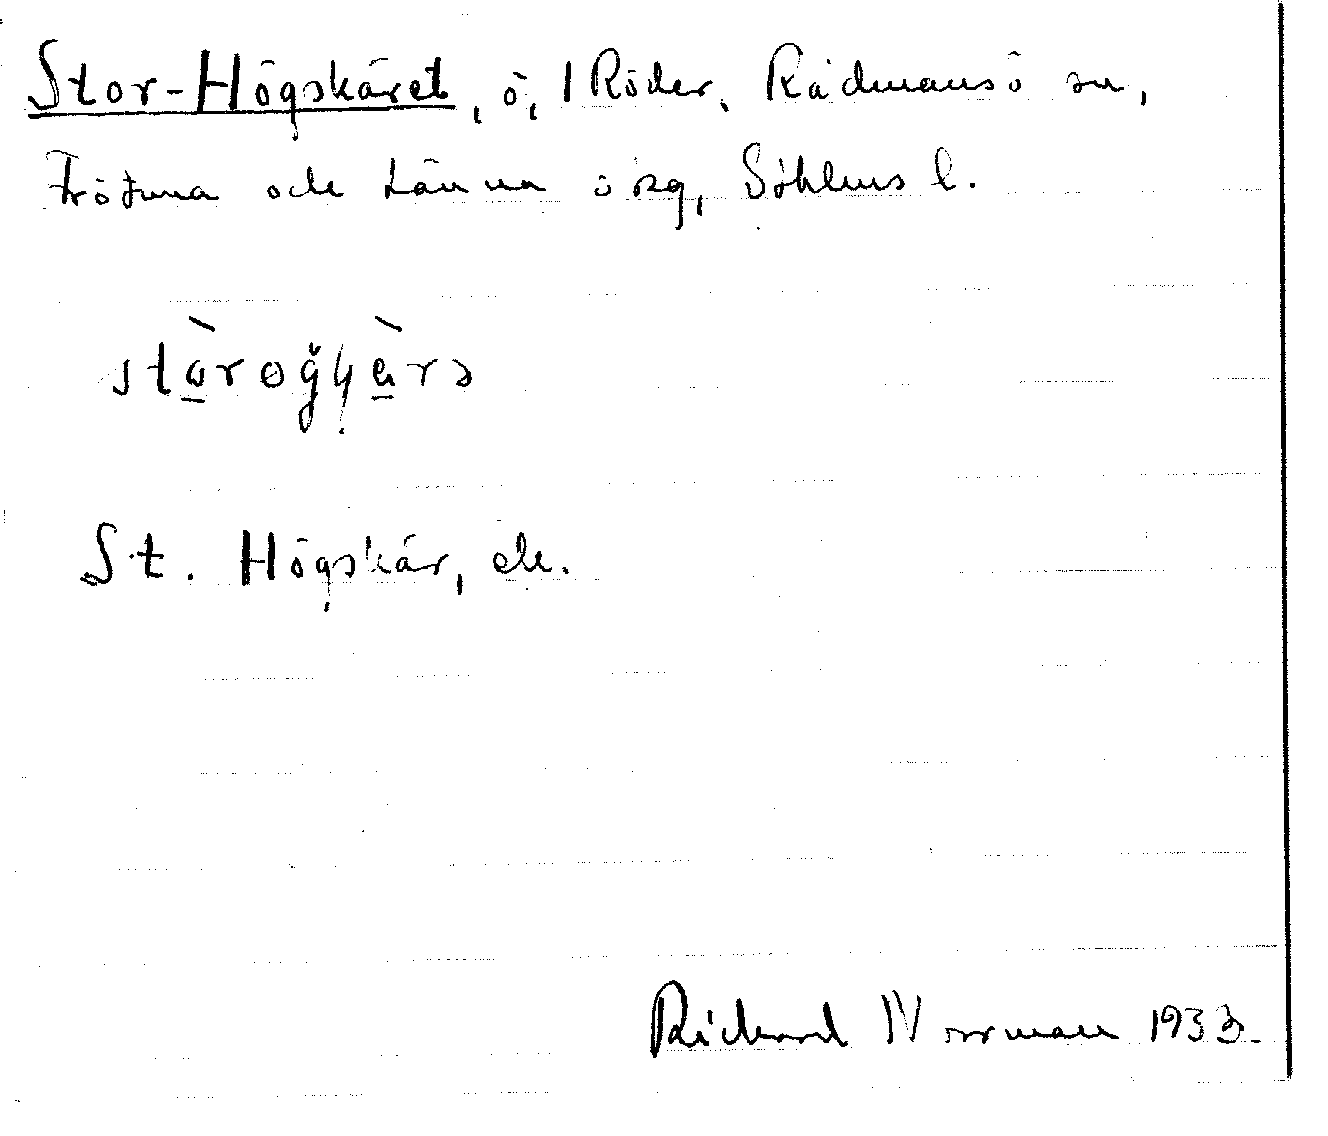 Stor-Högskäret, ö, i Röder, Rådmansö sn,
Frötuna och Länna órg, Sthlms l.
St. Högskär, ek.
Richard Norrman 1933.